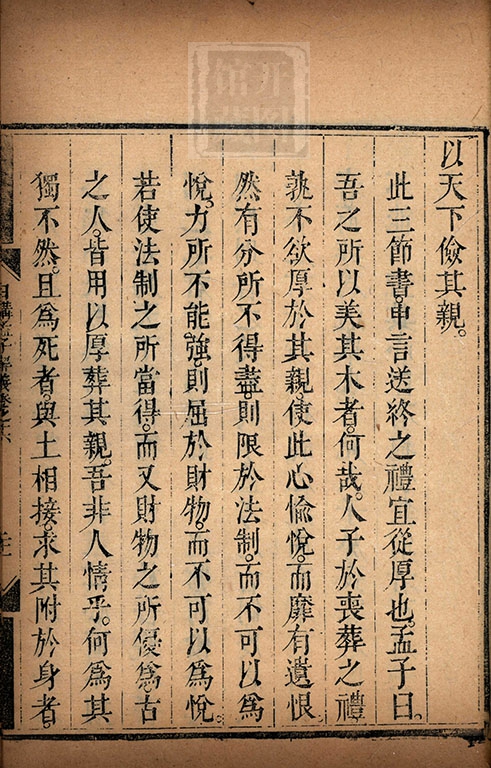 以天下儉其親。
此三節書。申言送終之禮宜從厚也。孟子曰。
吾之所以美其木者。何哉。人子於喪葬之禮
孰不欲厚於其親。使此心愉悅。而靡有遺恨。
然有分所不得盡。則限於法制。而不可以為
悅。力所不能強。則屈於財物。而不可以為悅。
若使法制之所當得。而又財物之所優為。古
之人。皆用以厚葬其親。吾非人情乎。何為其
獨不然。且為死者。與土相接。求其附於身者。
日講孟子